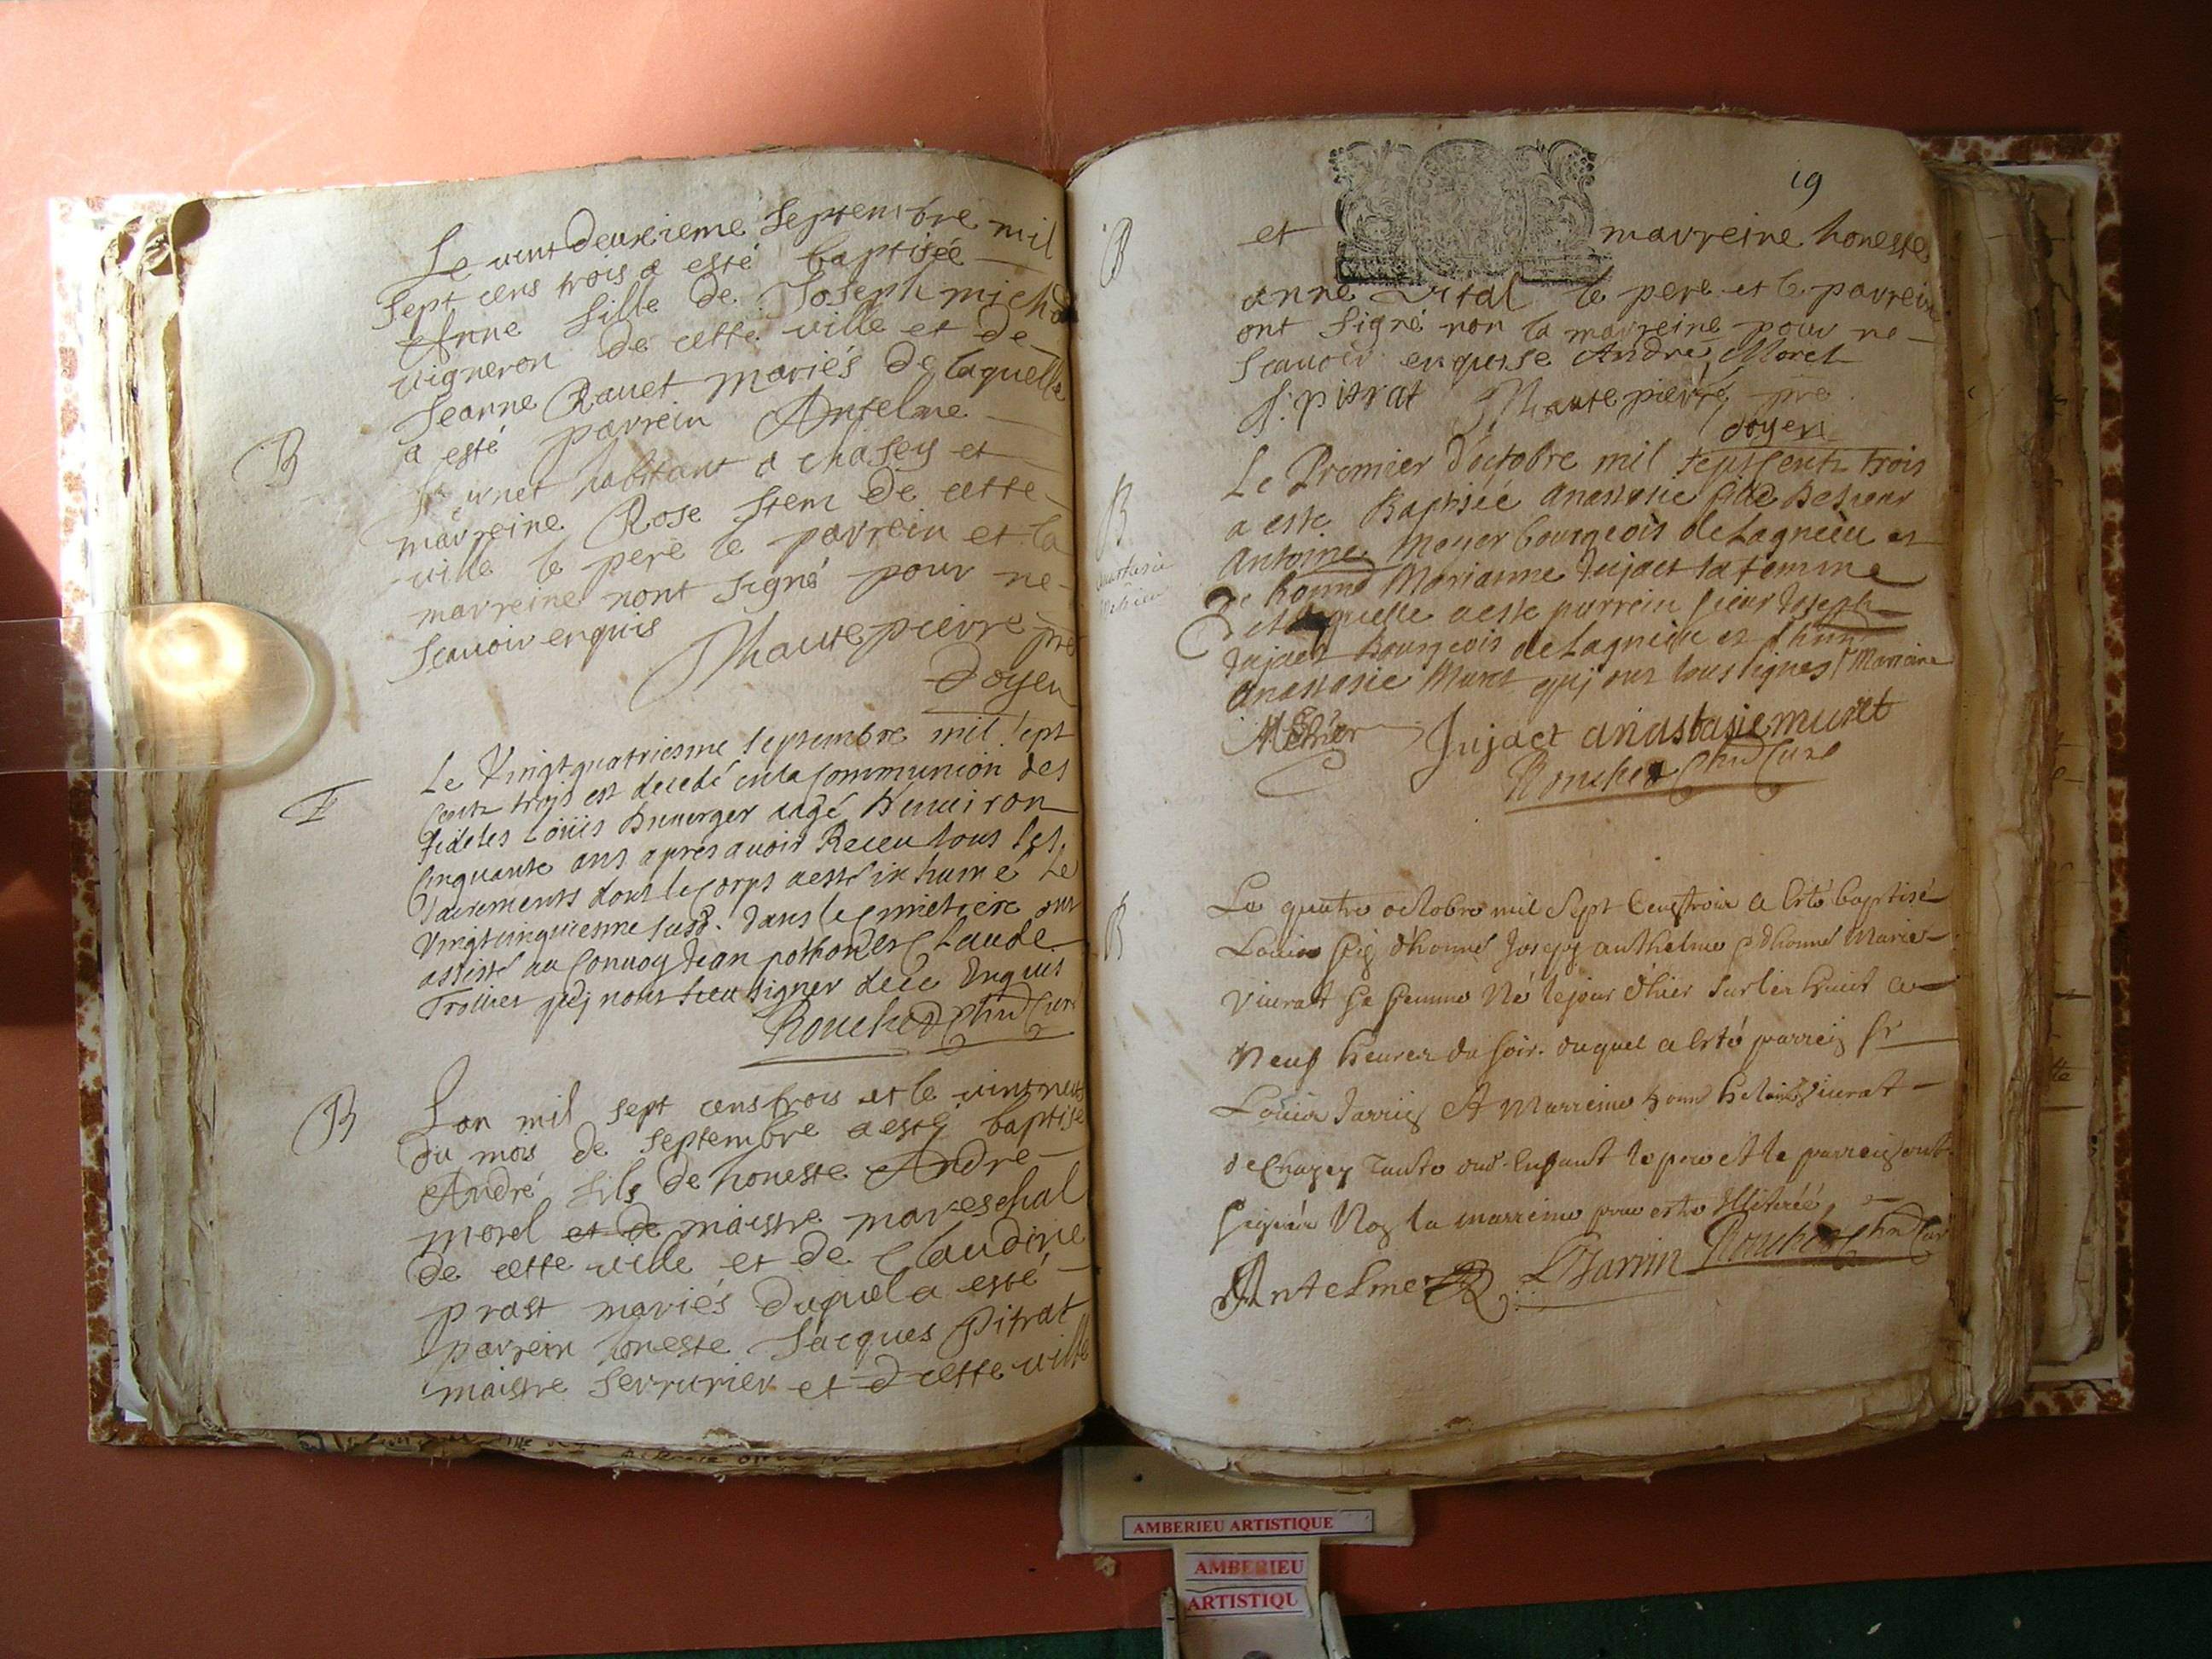 Le vint deuxieme septembre mil
sept cens trois a esté baptisée
Anne fille de Joseph micha
vigneron de cette ville et de
Jeanne Ravet mariés de laquelle
a esté parrein Antelme
B
habitant a chasey et
marreine Rose Item de cette
ville le pere le parrein et la
marreine nont signé pour ne
scavoir enquis
Jhautepierre pre
doyen
Le Vingtquatriesme septembre mil sept
Centz trois est decedé en la Communion des
fideles Loüis aagé Denuiron
Cinquante ans apres auoir Receu tous ses
sacrements dont le Corps aesté in humé Le
Vingtcinquiesme susd. dans le Cimetiere ont
assisté au Conuoy Jean et Claude
Trollier quj nont sceu signer de ce Enquis
B
Lan mil sept cens trois et le vint neuf
du mois de septembre a esté baptisé
André fils de honeste André
morel et de maistre mareschal
de cette ville et de Claudine
prost mariés duquel a esté
parrein honeste Jacques Pitrat
maistre serrurier et d cette ville
19
B
et marreine honeste
anne vital le pere et le parrein
ont signé non la marreine pour ne
scavoir enquise André Morel
J: pitrat Jhautepierre pre
doyen
B
Le Premier d'octobre mil sept Centz trois
a esté Baptisée anastasie fille De sieur
Antoine bourgeois de Lagnieu et
de honne Marianne Jujact sa femme
De laquelle a esté parrein sieur Joseph
Jujact Bourgeois de Lagnieu et
Marreine
anastasie Muret quj ont tous signés
Jujact anastasie muret
B
Le quatre octobre mil Sept Cens trois a esté baptisé
Louis fils d'honne Joseph anthelme & d'honne Marie
Viurat sa femme Né le jour d'hier sur les huit a
Neuf heures du soir. duquel a esté parrein sr
Louis Jarrin Et Marreine honne viurat
de Chazey Tante dud. Enfant le pere et le parrein ont
signés Non la marreine pour estre illitérée
Antelme LJarrin
AMBERIEU ARTISTIQUE
AMBERIEU
ARTISTIQU